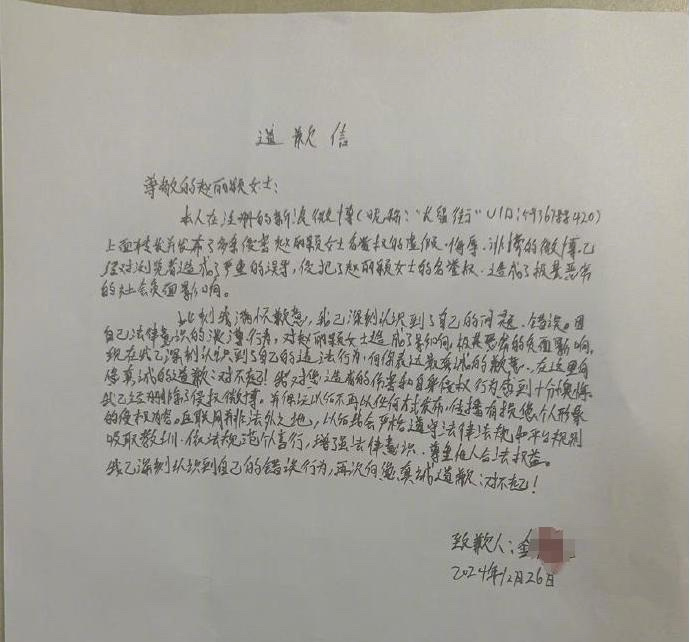 道歉信
尊敬的赵丽颖女士：
本人在注册的新浪微博(昵称："长留街" UID:5936788420)
上面转发并发布了多条侵害赵丽颖女士名誉权的虚假、侮辱、诽谤的微博,已
经对浏览者造成了严重的误导，侵犯了赵丽颖女士的名誉权，造成了极其恶劣
的社会负面影响。
此刻我满怀歉意，我已深刻认识到了自己的问题、错误。因
自己法律意识的淡薄行为，对赵丽颖女士造成了影响，极其恶劣的负面影响。
现在我已深刻认识到了自己的违法行为,向你表达最真诚的歉意。在这里向
您真诚的道歉：对不起！我对您造成的伤害和自身侵权行为感到十分懊悔。
我已经删除了侵权微博。并保证以后不再以任何方式发布、传播有损您个人形象
的侵权内容。互联网并非法外之地，以后我会严格遵守法律法规和平台规则
吸取教训、依法规范言行，增强法律意识、尊重他人合法权益。
我已深刻认识到自己的错误行为，再次向您真诚道歉：对不起！
致歉人：金
2024年12月26日